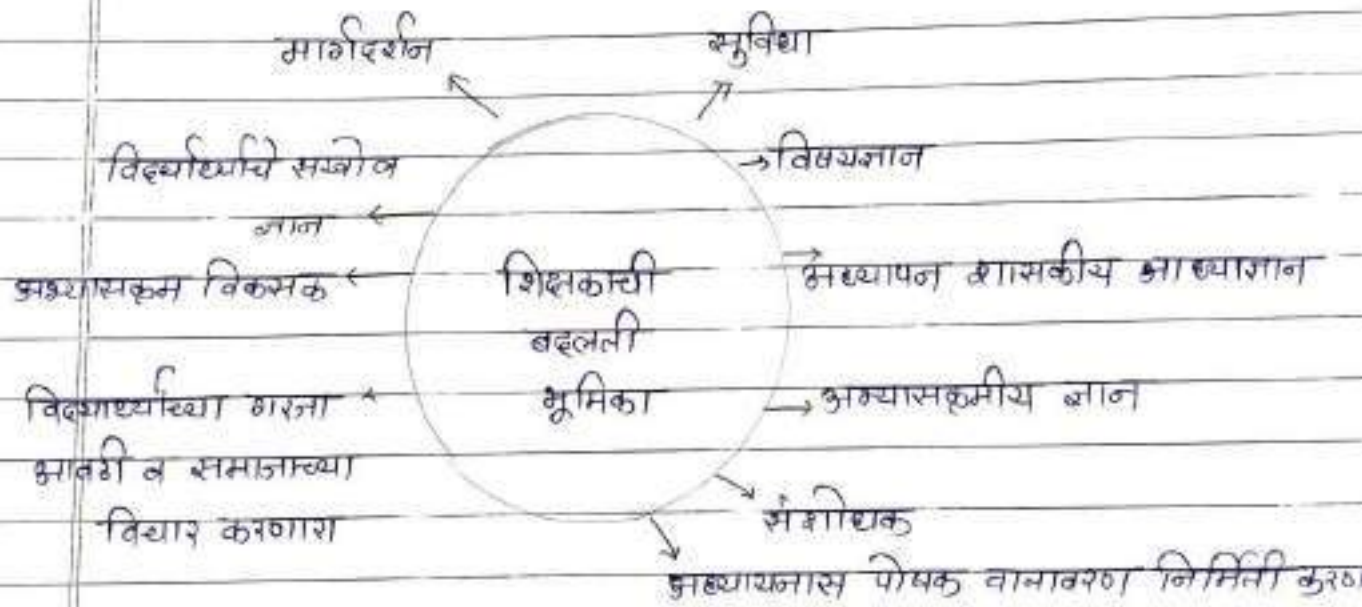 मार्गदर्शन
सुविधा
विद्यार्थ्यांचे सखोल
ज्ञान
विषयज्ञान
अभ्यासक्रम विकसक
शिक्षकाची
बदलती
भूमिका
अध्यापन शासकीय
अभ्यासक्रमीय ज्ञान
विद्यार्थ्यांच्या गरजा
आवडी व समाजाच्या
विचार करणारा
संशोधक
अध्ययनास पोषक वातावरण निर्मिती